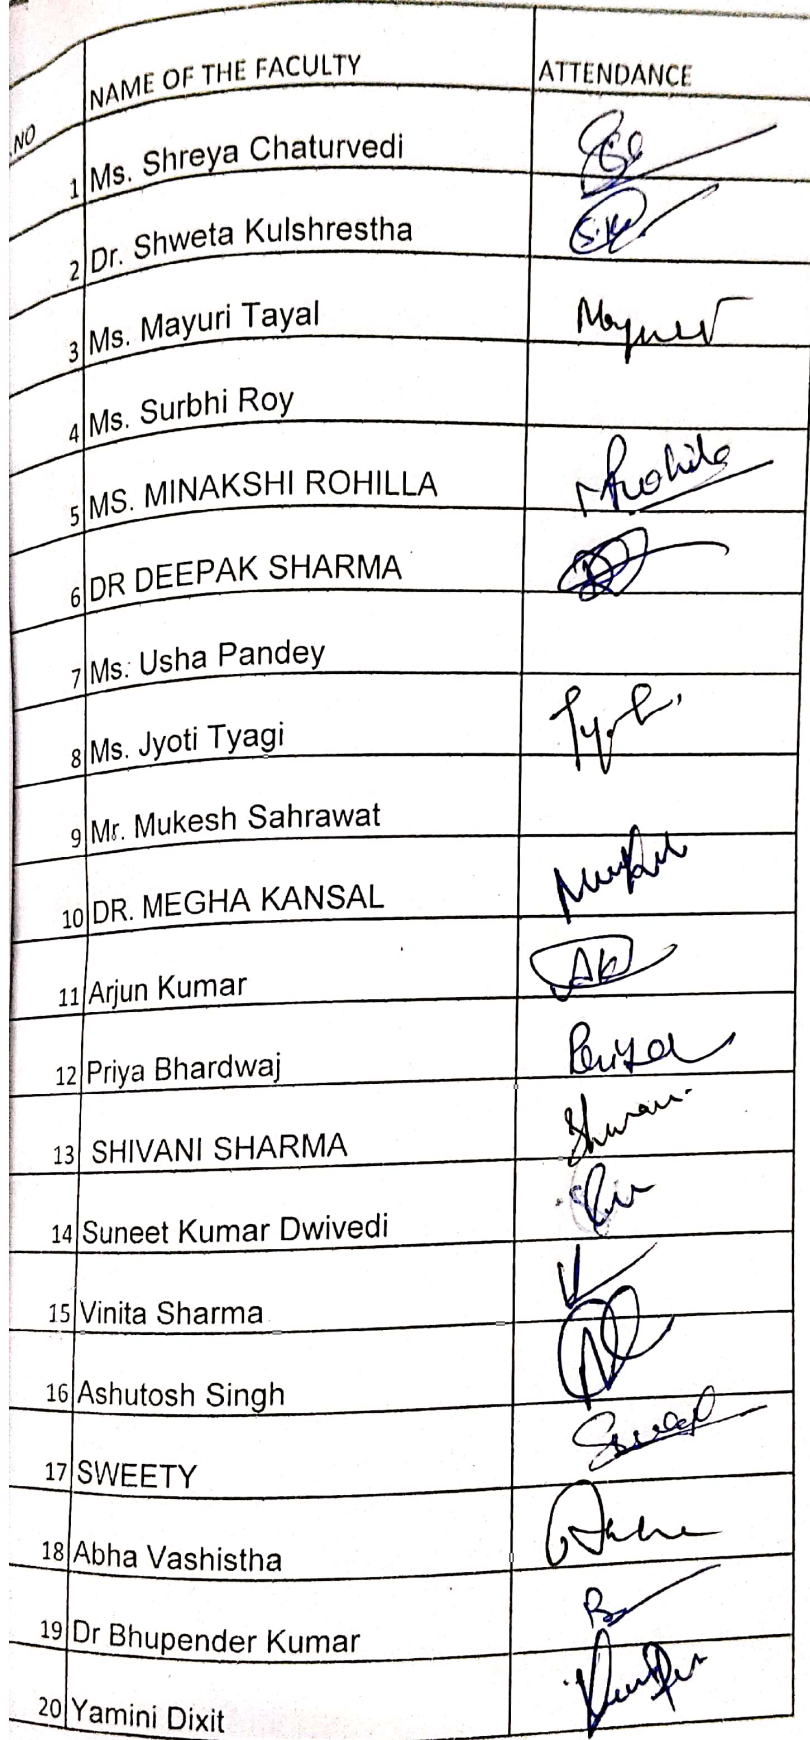 .NO NAME OF THE FACULTY ATTENDANCE
1 Ms. Shreya Chaturvedi
2 Dr. Shweta Kulshrestha
3 Ms. Mayuri Tayal
4 Ms. Surbhi Roy
5 MS. MINAKSHI ROHILLA
6 DR DEEPAK SHARMA
7 Ms. Usha Pandey
8 Ms. Jyoti Tyagi
9 Mr. Mukesh Sahrawat
10 DR. MEGHA KANSAL
11 Arjun Kumar AK
12 Priya Bhardwaj Priya
13 SHIVANI SHARMA
14 Suneet Kumar Dwivedi
15 Vinita Sharma
16 Ashutosh Singh
17 SWEETY
18 Abha Vashistha
19 Dr Bhupender Kumar
20 Yamini Dixit